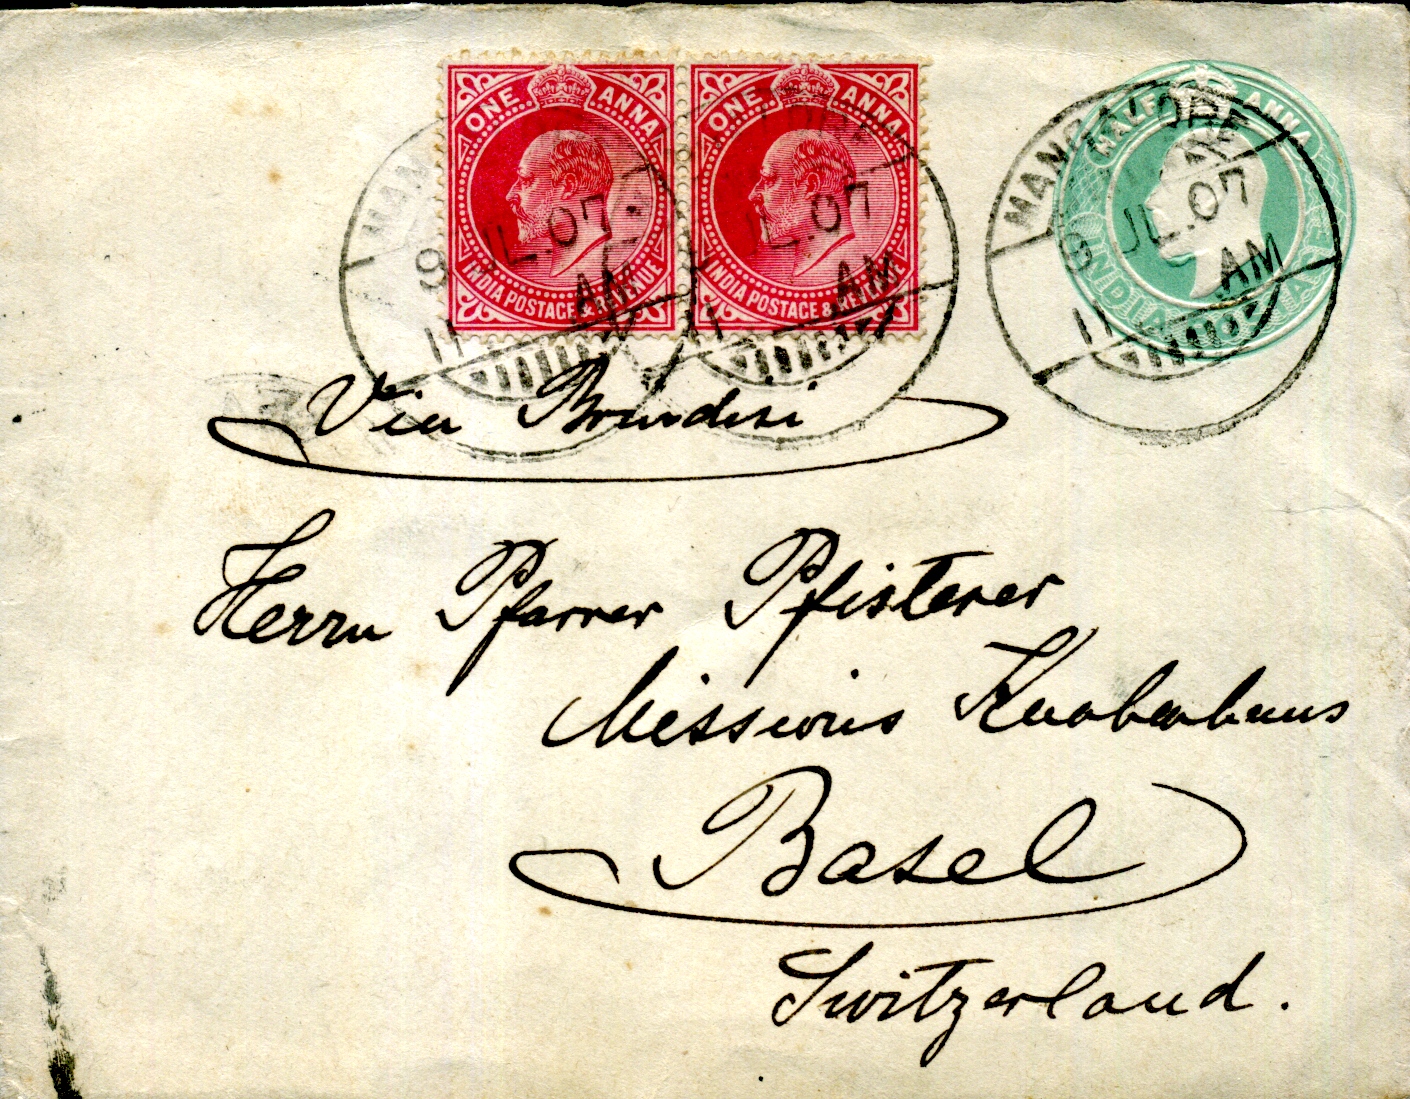 ONE ANNA
INDIA POSTAGE & REVENUE
ONE ANNA
INDIA POSTAGE & REVENUE
HALF ANNA
INDIA
MANGALORE
9 JL.07
11 AM
MANGALORE
9 JL.07
11 AM
MANGALORE
9 JL.07
11 AM
Via Brindisi
Herrn Pfarrer Pfisterer
Missions Knabenhaus
Basel
Switzerland.